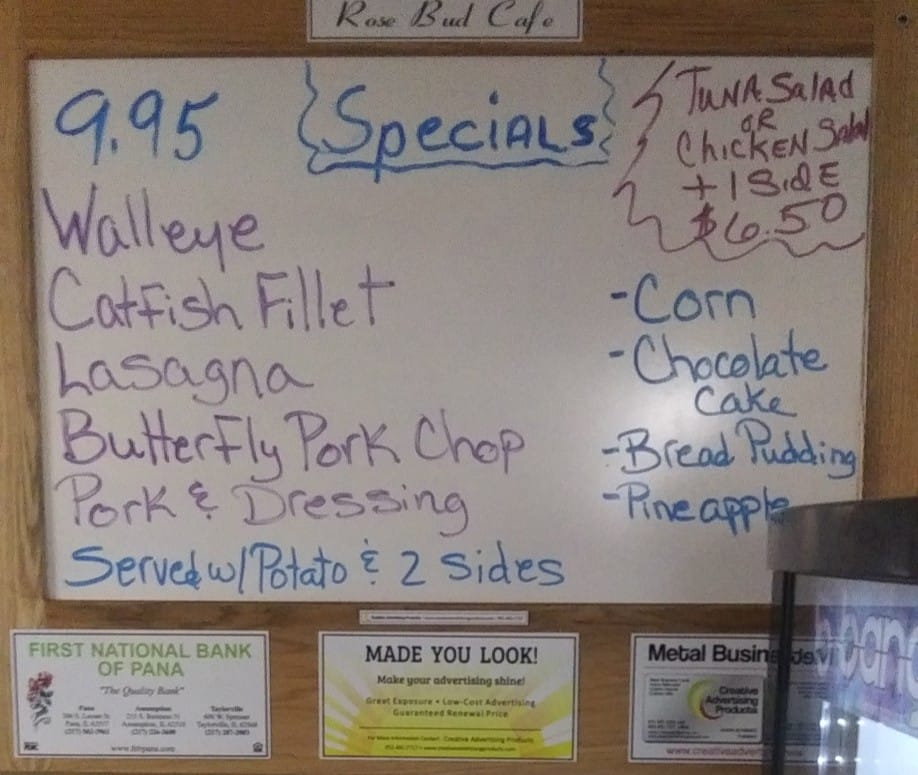 Rose Bud Cafe
9.95
Specials
Walleye
Catfish Fillet
Lasagna
Butterfly Pork Chop
Pork & Dressing
Served w/Potato & 2 Sides
Tuna Salad
or
Chicken Salad
+ 1 Side
$6.50
-Corn
-Chocolate
Cake
-Bread Pudding
-Pineapple
FIRST NATIONAL BANK
OF PANA
"The Quality Bank"
Pana
Assumption
Taylorville
MADE YOU LOOK!
Make your advertising shine!
Great Exposure • Low-Cost Advertising
Guaranteed Renewal Price
Metal Busin
Creative
Advertising
Products